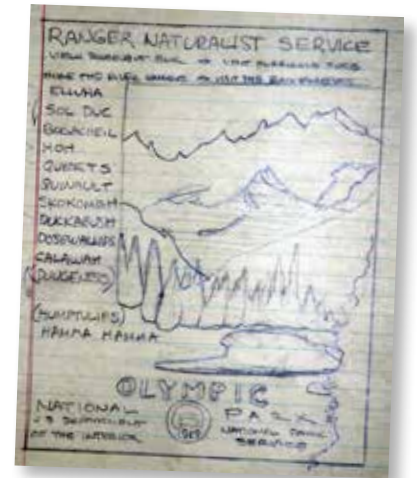 RANGER NATURALIST SERVICE
VIEW
VISIT THE
ELWHA
SOL DUC
BOGACHEIL
HOH
QUEETS
QUINAULT
SKOKOMISH
DUKKABUSH
DOSEWALLIPS
CALAWAH
(DUNGENESS)
(HUMPTULIPS)
HAMMA HAMMA
OLYMPIC
NATIONAL PARK
US DEPARTMENT NATIONAL PARK
OF THE INTERIOR SERVICE